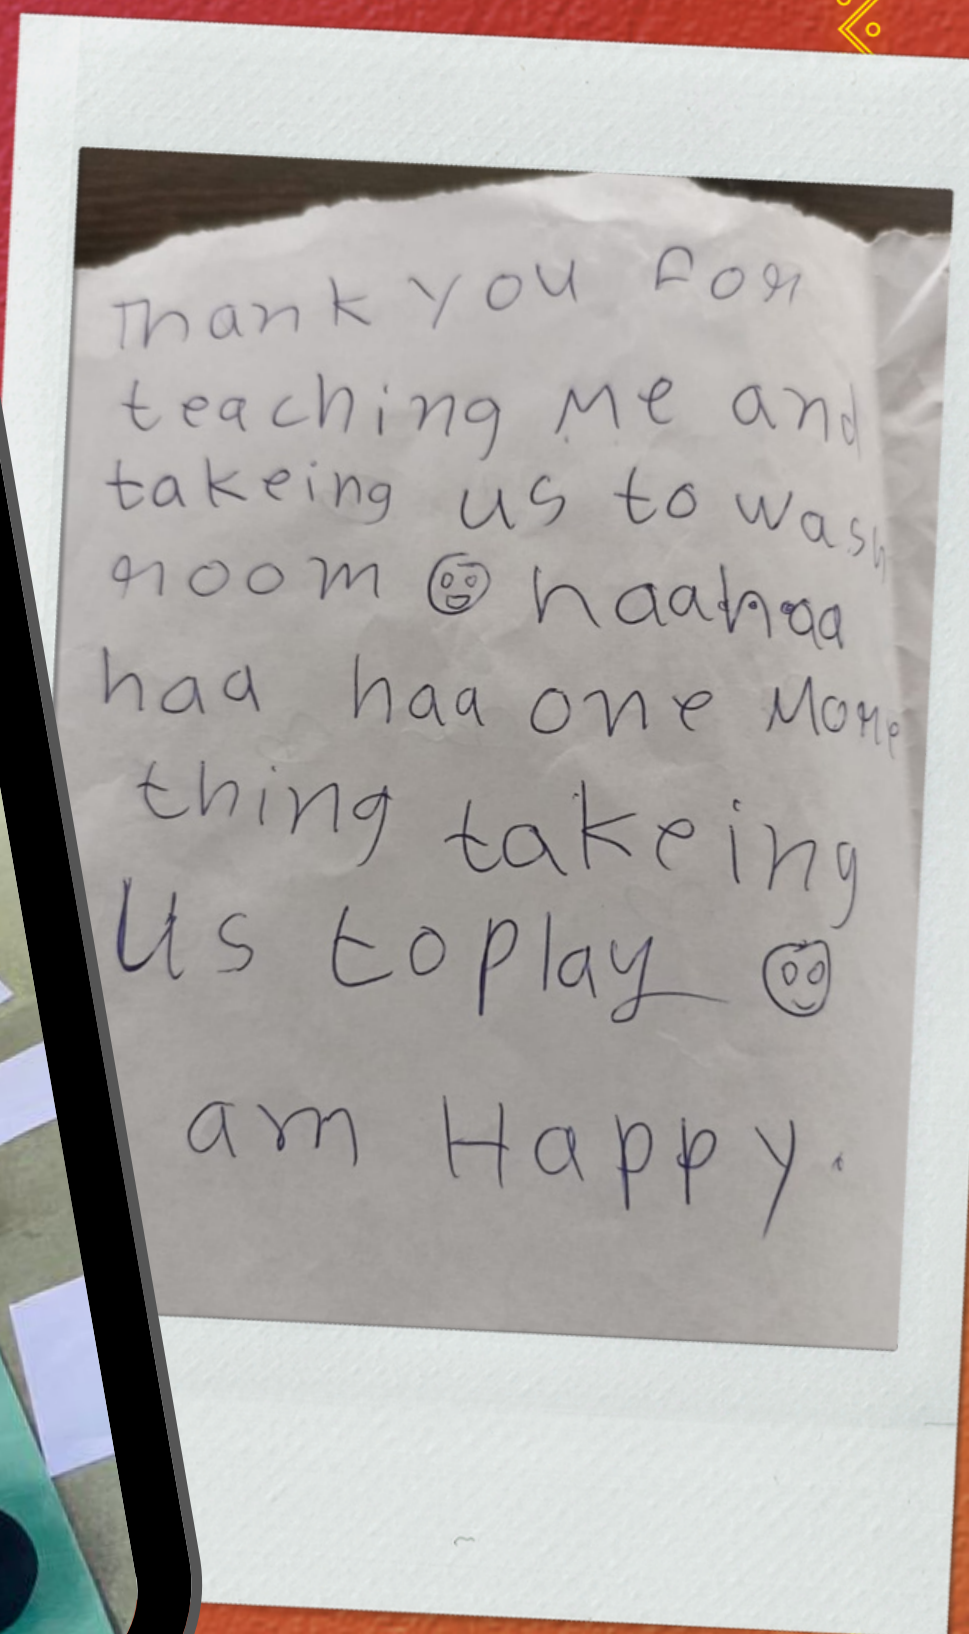 Thank you for
teaching me and
takeing us to wash
room haahaa
haa haa one More
thing takeing
Us to play
am Happy.